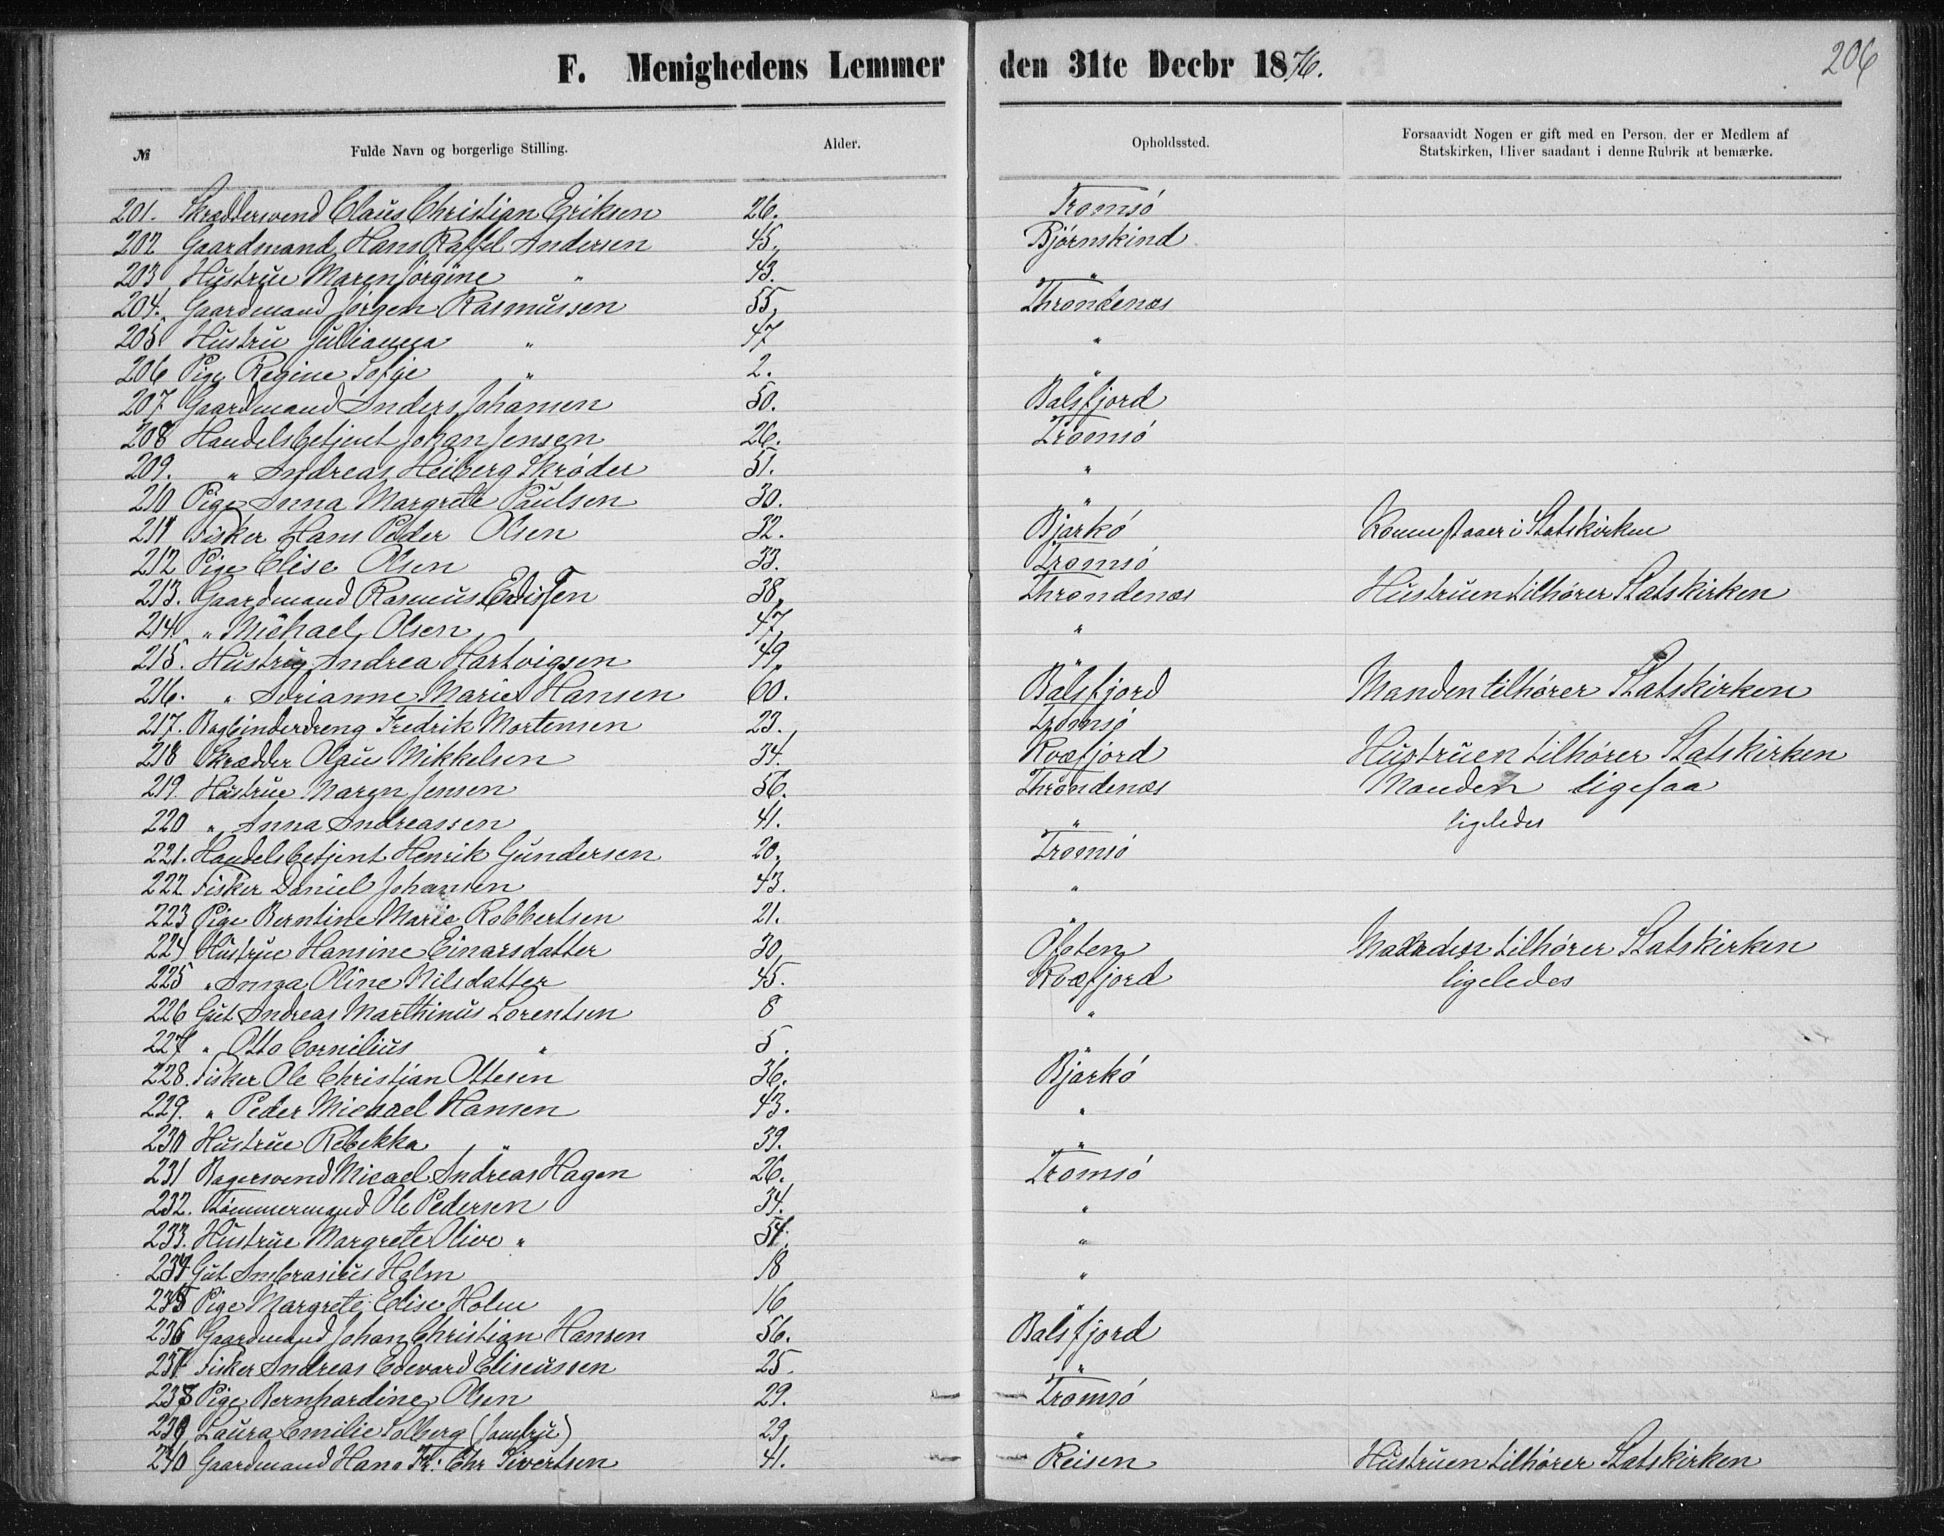 206
F. Menighedens Lemmer den 31te Decbr 1876.
№ Fulde Navn og borgerlige Stilling. Alder. Opholdssted. Forsaavidt Nogen er gift med en Person, der er Medlem af Statskirken, bliver saadant i denne Rubrik at bemærke.
201. Skræddersvend Claus Christian Eriksen 26. Tromsó
202 Gaardmand Hans Raffel Andersen 45. Bjørnskind
203 Hustrue Maren Jørgine " 43. "
204. Gaardmand Jørgen Rasmussen 55. Throndenæs
205 Hustru Julianna " 47 "
206 Pige Regine Sofie " 2. "
207 Gaardmand Anders Johansen 50. Balsfjord
208 Handelsbetjent Johan Jensen 26. Tromsó
209. " Andreas Heiberg Skrøder 51. "
210 Pige Anna Margrete Paulsen 30. "
211 Fisker Hans Peder Olsen 32. Bjarkó Konen staaer i Statskirken
212 Pige Elise Olsen 33. Tromsó
213. Gaardmand Rasmus 38. Throndenæs Hustruen tilhører Statskirken
214. " Michael Olsen 47. "
215. Hustru Andrea Hartvigsen 49. "
216. " Adrianne Marie Hansen 60. Balsfjord Manden tilhører Statskirken
217. Bogbinderdreng Fredrik Mortensen 23. Tromsó
218 Skrædder Olaus Mikkelsen 34. Kvæfjord Hustruen tilhører Statskirken
219. Hustrue Maren Jensen 56. Throndenæs Manden ligesaa
220 " Anna Andreassen 41. " ligeledes
221. Handelsbetjent Henrik Gundersen 20. Tromsó
222 Fisker Daniel Johansen 43. "
223 Pige Berntine Marie Robbertsen 21. "
224 Hustrue Hansine Einarsdatter 30. Ofoten Manden tilhører Statskirken
225 " Anna Oline Nilsdatter 45. Kvæfjord ligeledes
226 Gut Andreas Marthinus Lorentsen 8 "
227 " Otto Cornilius " 5. "
228. Fisker Ole Christian Ottesen 36. Bjarkó
229. " Peder Michael Hansen 43. "
230 Hustrue Rebekka " 39. "
231 Bagersvend Micael Andreas Hagen 26. Tromsó
232. Tømmermand Ole Pedersen 34. "
233. Hustrue Margrete Olive " 54. "
234 Gut Ambrasius Holm 18 "
235 Pige Margrete Elise Holm 16 "
236 Gaardmand Johan Christian Hansen 56. Balsfjord
237 Fisker Andreas Edevard Eliseussen 25. "
238 Pige Bernhardine Olsen 29. Tromsó
239 Laura Emilie Solberg (Jomfru) 29. "
240 Gaardmand Hans Fr. Chr Sivertsen 41. Reisen Hustruen tilhører Statskirken